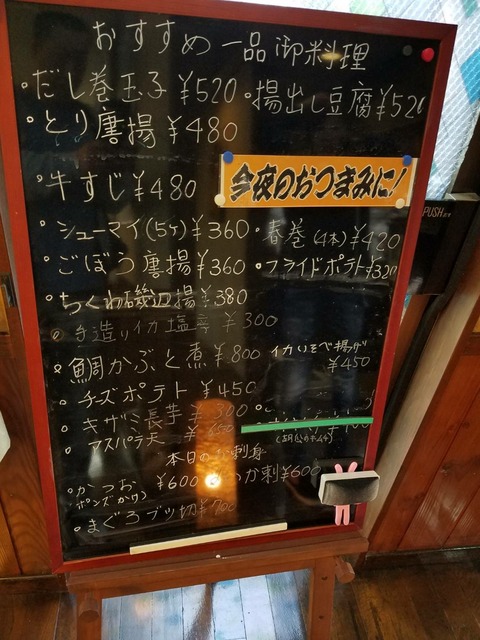 おすすめ一品御料理
・だし巻玉子 ¥520 ・揚出し豆腐 ¥520
・とり唐揚 ¥480
今夜のおつまみに!
・牛すじ ¥480
・シューマイ(5ケ) ¥360 ・春巻(4本) ¥420
・ごぼう唐揚 ¥360 ・フライドポテト ¥320
・ちくわ磯辺揚 ¥380
・手造りイカ塩辛 ¥300
・鯛かぶと煮 ¥800 イカいそべ揚げ ¥450
・チーズポテト ¥450
・キザミ長芋 ¥300
・アスパラ天
本日のお刺身
・かつお ¥600 か刺 ¥600
(ポンズかけ)
・まぐろブツ切 ¥700
PUSH